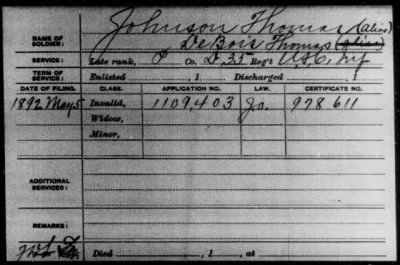 Johnson Thomas (alias)
NAME OF SOLDIER: DeBois Thomas (alias)
SERVICE: Late rank, P Co. D, 35 Reg't U.S.C. Inf
TERM OF SERVICE: Enlisted , 1 Discharged , 1
DATE OF FILING. CLASS. APPLICATION NO. LAW. CERTIFICATE NO.
1892 May 5 Invalid, 1109,403 978611
Widow,
Minor,
ADDITIONAL SERVICES:
REMARKS:
Died , 1 , at